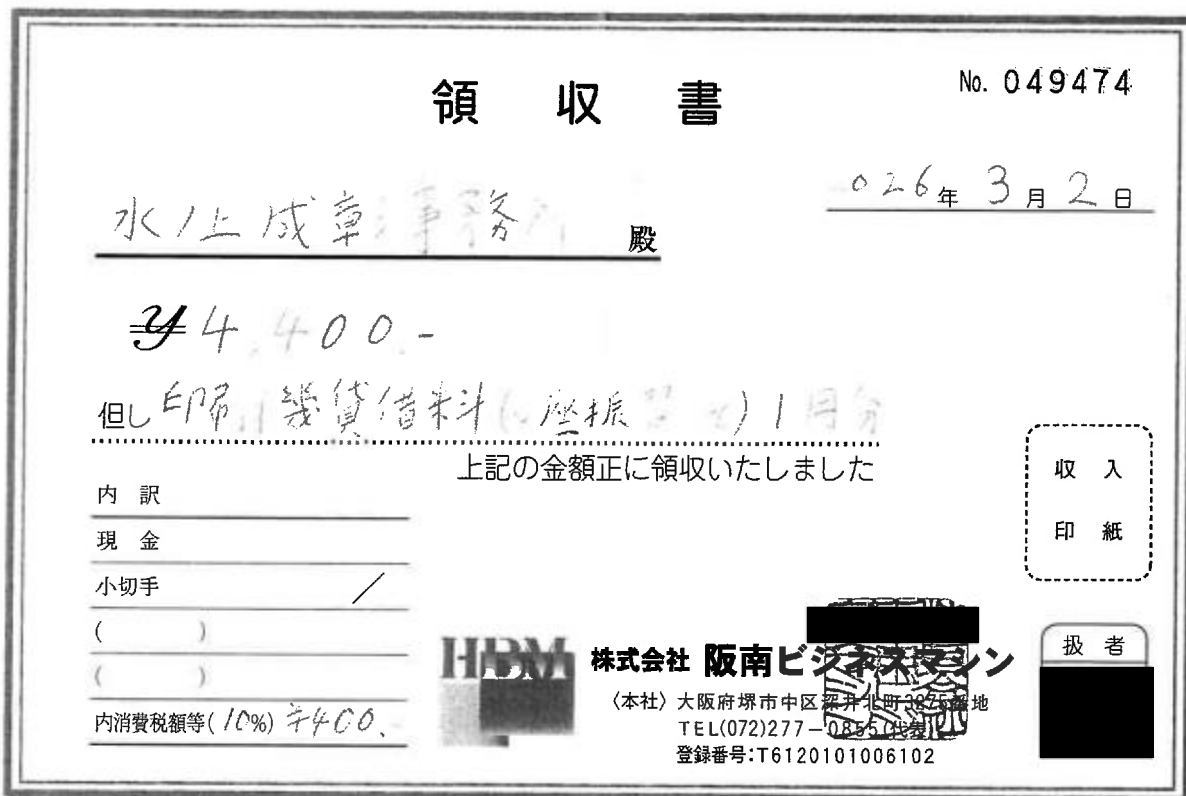 領収書
No. 049474
026年3月2日
水ノ上成章事務 殿
¥4,400.-
但し 印刷機賃借料 1
上記の金額正に領収いたしました
収入
印紙
内訳
現金
小切手 /
( )
( )
内消費税額等(10%) ¥400.
HBM
株式会社 阪南ビジネスマシン
〈本社〉大阪府堺市中区深井北町3875番地
TEL(072)277-0855(代表)
登録番号:T6120101006102
扱者